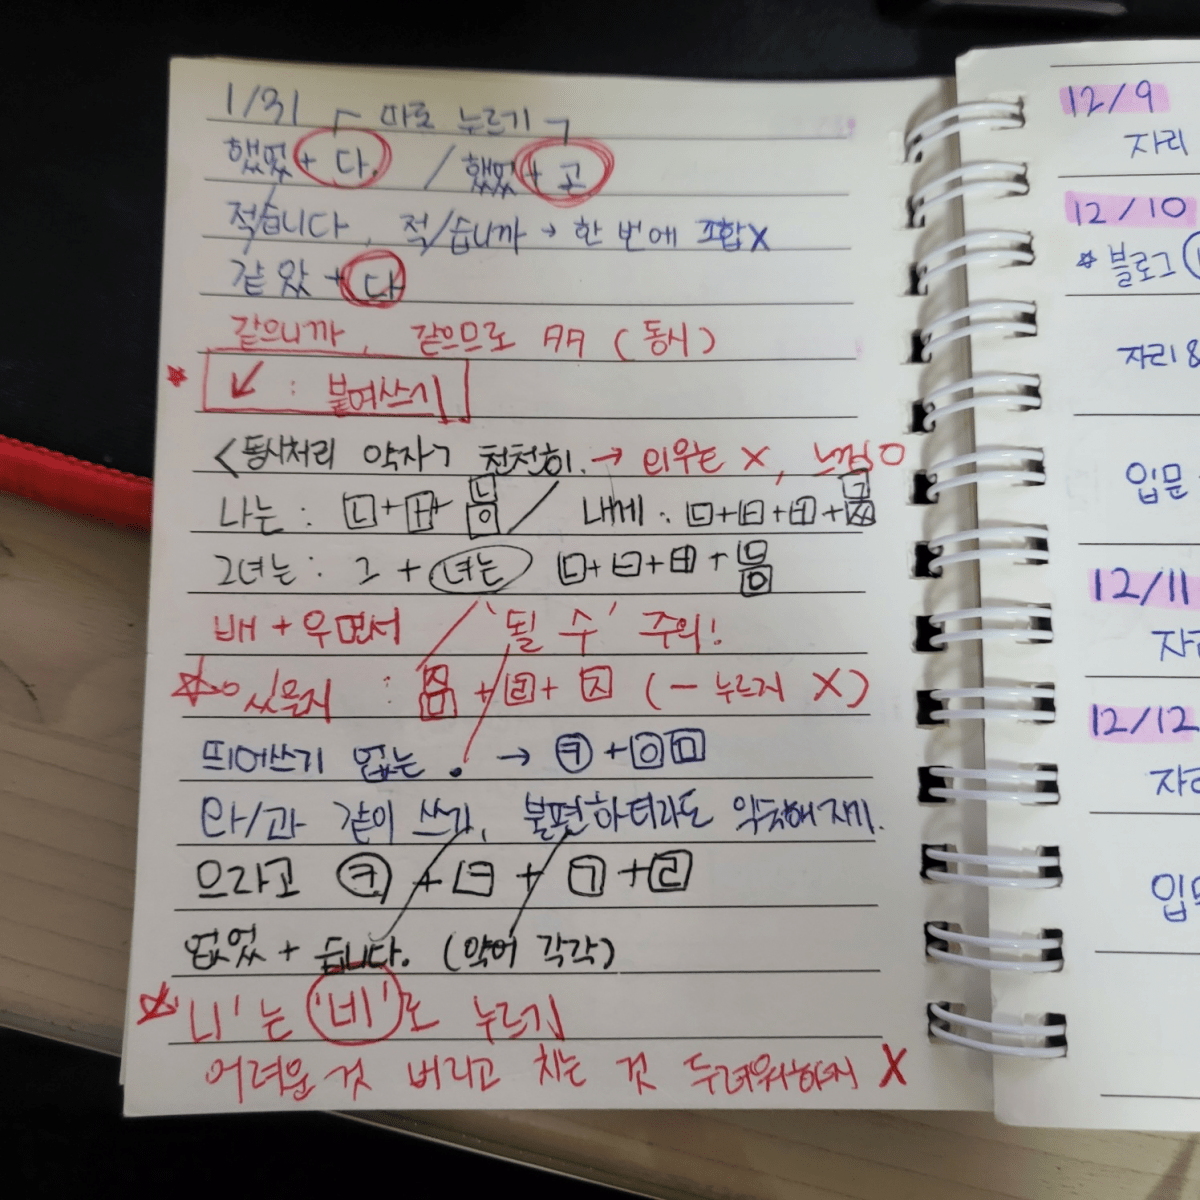 1/31 ┌ 따로 누르기 ┐
했었 + 다. / 했었 + 고
적습니다, 적/습니까 → 한 번에 조합X
같았 + 다
같으니까, 같으므로 (동시)
★ ↙ : 붙여쓰기
<동시처리 약자ㄱ 천천히. → 외우는 X, 느낌O
나는 : ㄴ+ㅏ+ㄴㅇ 내게 :
그녀는 : 그 + 녀는
배 + 우면서 '될 수' 주의!
☆ 있을지 : (ㅡ 누르지 X)
띄어쓰기 없는 . → ㅋ+ㅇㅁ
와/과 같이 쓰기, 불편하더라도 익숙해지기.
으라고 ㅋ + ㅌ + ㄱ + ㄹ
없었 + 습니다. (약어 각각)
☆ '니'는 '네'로 누르기
어려운 것 버리고 치는 것 두려워하지 X
12/9
자리
12/10
☆ 블로그
자리 &
입문
12/11
12/12